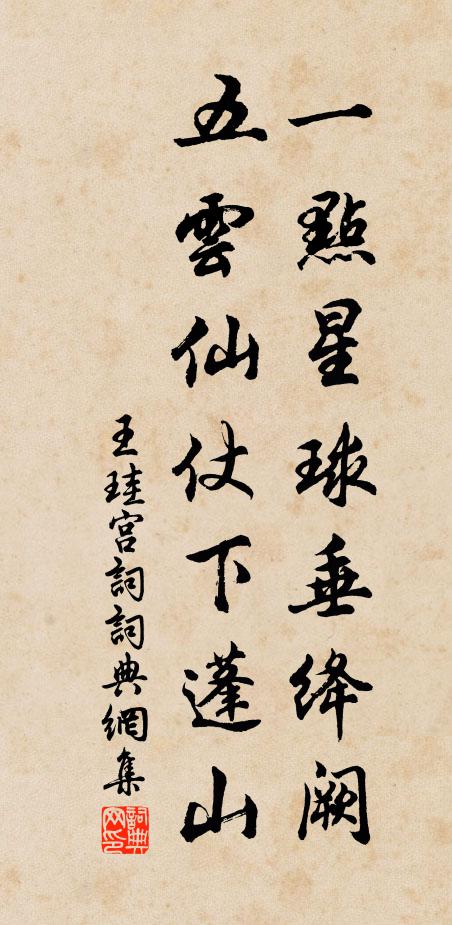 一點星球垂絳闕
五雲仙仗下蓬山
王珪宮詞詞典網集
詞典网印